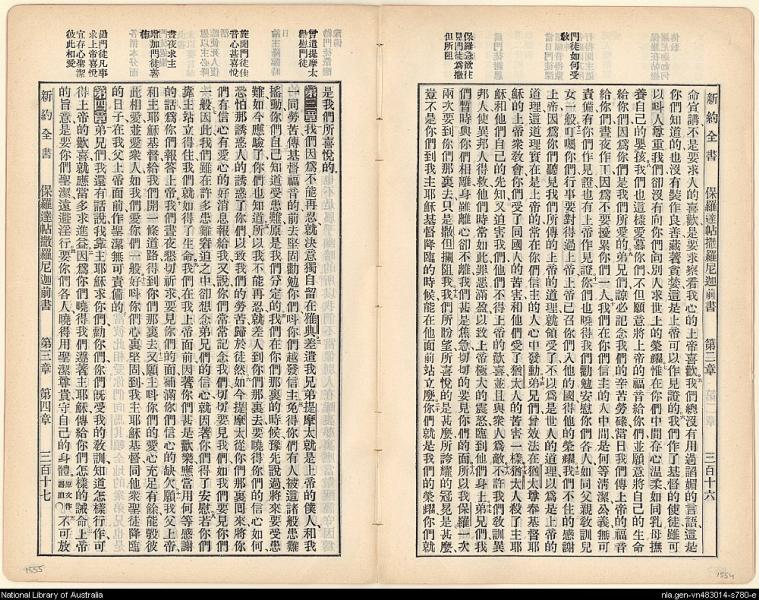 新約全書 保羅達帖撒羅尼迦前書 第二章 三百十六
命宣講不是要求人的喜歡是要求察看我心的上帝喜歡我們總沒有用過諂媚的言語這是
你們知道的也沒有製作良善藏著貪婪這是上帝可以作見證的我們作了基督的使徒雖可
以叫人尊重我們卻沒有向你們向別人求世上的榮耀惟在你們中間存心溫柔如同乳母撫
養自己的嬰孩我們也這樣愛慕你們不但願意將上帝的福音給你們並願意將自己的生命
給你們因為你們是我們所愛的弟兄們諒必記念我們的辛苦勞碌當日我們傳上帝的福音
給你們晝夜作工因為不要擾累你們一人我們在你們信主的人中間是何等清潔公義無可
責備有你們作見證也有上帝作見證你們也曉得我們勸勉安慰你們各人如同父親教訓兒
女一般叮囑你們行事要對得過上帝上帝已召你們入他的國得他的榮耀我們不住的感謝
上帝因為你們聽見我們所傳的上帝的道理就領受了不以為是世人的道理以為是上帝的
道理這道理實在是上帝的常在你們信主的人心中發動弟兄們曾效法在猶太尊奉基督耶
穌的上帝眾教會你們受了同國人的苦害和他們受了猶太人的苦害一樣猶太人殺了主耶
穌和他們自己的先知又迫害我們他們不得上帝的歡喜並且與眾人為敵不許我們教訓異
邦人使異邦人得救他們時常如此罪惡滿盈以致上帝極大的震怒臨到他們身上弟兄們我
們暫時與你們相離身雖離心卻不離我們甚是焦急切切的要見你們的面所以我保羅一次
兩次要到你們那裏去只是撒但攔阻我我們所盼望所喜悅的是甚麼所誇耀的冠冕是甚麼
豈不是你們到我主耶穌基督降臨的時候能在他面前站立麼你們就是我們的榮耀你們就
門徒如何受教
保羅為何切要見門徒為撒但所阻
是我們所喜悅的
第三章我們因為不能再忍就決意獨自留在雅典差遣我兄弟提摩太就是上帝的僕人和我
一同勞苦傳基督福音的前去堅固勸勉你們叫你們越發信主免得你們有人被這諸般患難
搖動你們自己知道受患難原是我們分定的我們在你們那裏的時候豫先說過將來要受患
難如今應驗了你們也知道所以我不能再忍就差人到你們那裏去要曉得你們的信心如何
恐怕那誘惑人的誘惑了你們以致我們的勞苦歸於徒然如今提摩太從你們那裏回來將你
們有信心有愛心的好消息報給我又說你們常常記念我們切切要見我們如我們要見你們
一般因此我們雖在許多患難窘迫之中卻想念弟兄們的信心就因著你們得了安慰若你們
靠主站立得住我們就如得了生命我們在我上帝面前因著你們甚是歡樂應當用何等感謝
的話為你們報答上帝我們晝夜懇切祈求要見你們的面補滿你們信心的缺欠願我父上帝
和主耶穌基督給我們開一條道路得到你們那裏去又願主叫你們的愛心充足有餘能彀彼
此相愛並愛眾人如我們愛你們一般好叫你們心裏堅固到我主耶穌基督同他眾聖徒降臨
的日子在我父上帝面前作聖潔無可責備的
第四章弟兄們我還有話說我靠主耶穌求你們勸你們你們既受我的教訓知道怎樣行作可
得上帝的歡喜就應當多求進益因為你們曉得我們遵著主耶穌傳給你們怎樣的誡命上帝
的旨意是要你們聖潔遠避淫行要你們各人曉得用聖潔尊貴守自己的身體不可放
新約全書 保羅達帖撒羅尼迦前書 第三章 第四章 三百十七
曾遣提摩太慰勉門徒
靠聞門徒信實心甚喜悅
晝夜求主增加門徒善德
勸門徒凡事求上帝喜悅宜存心聖潔彼此相愛
1555
1554
National Library of Australia
nla.gen-vn483014-s780-e